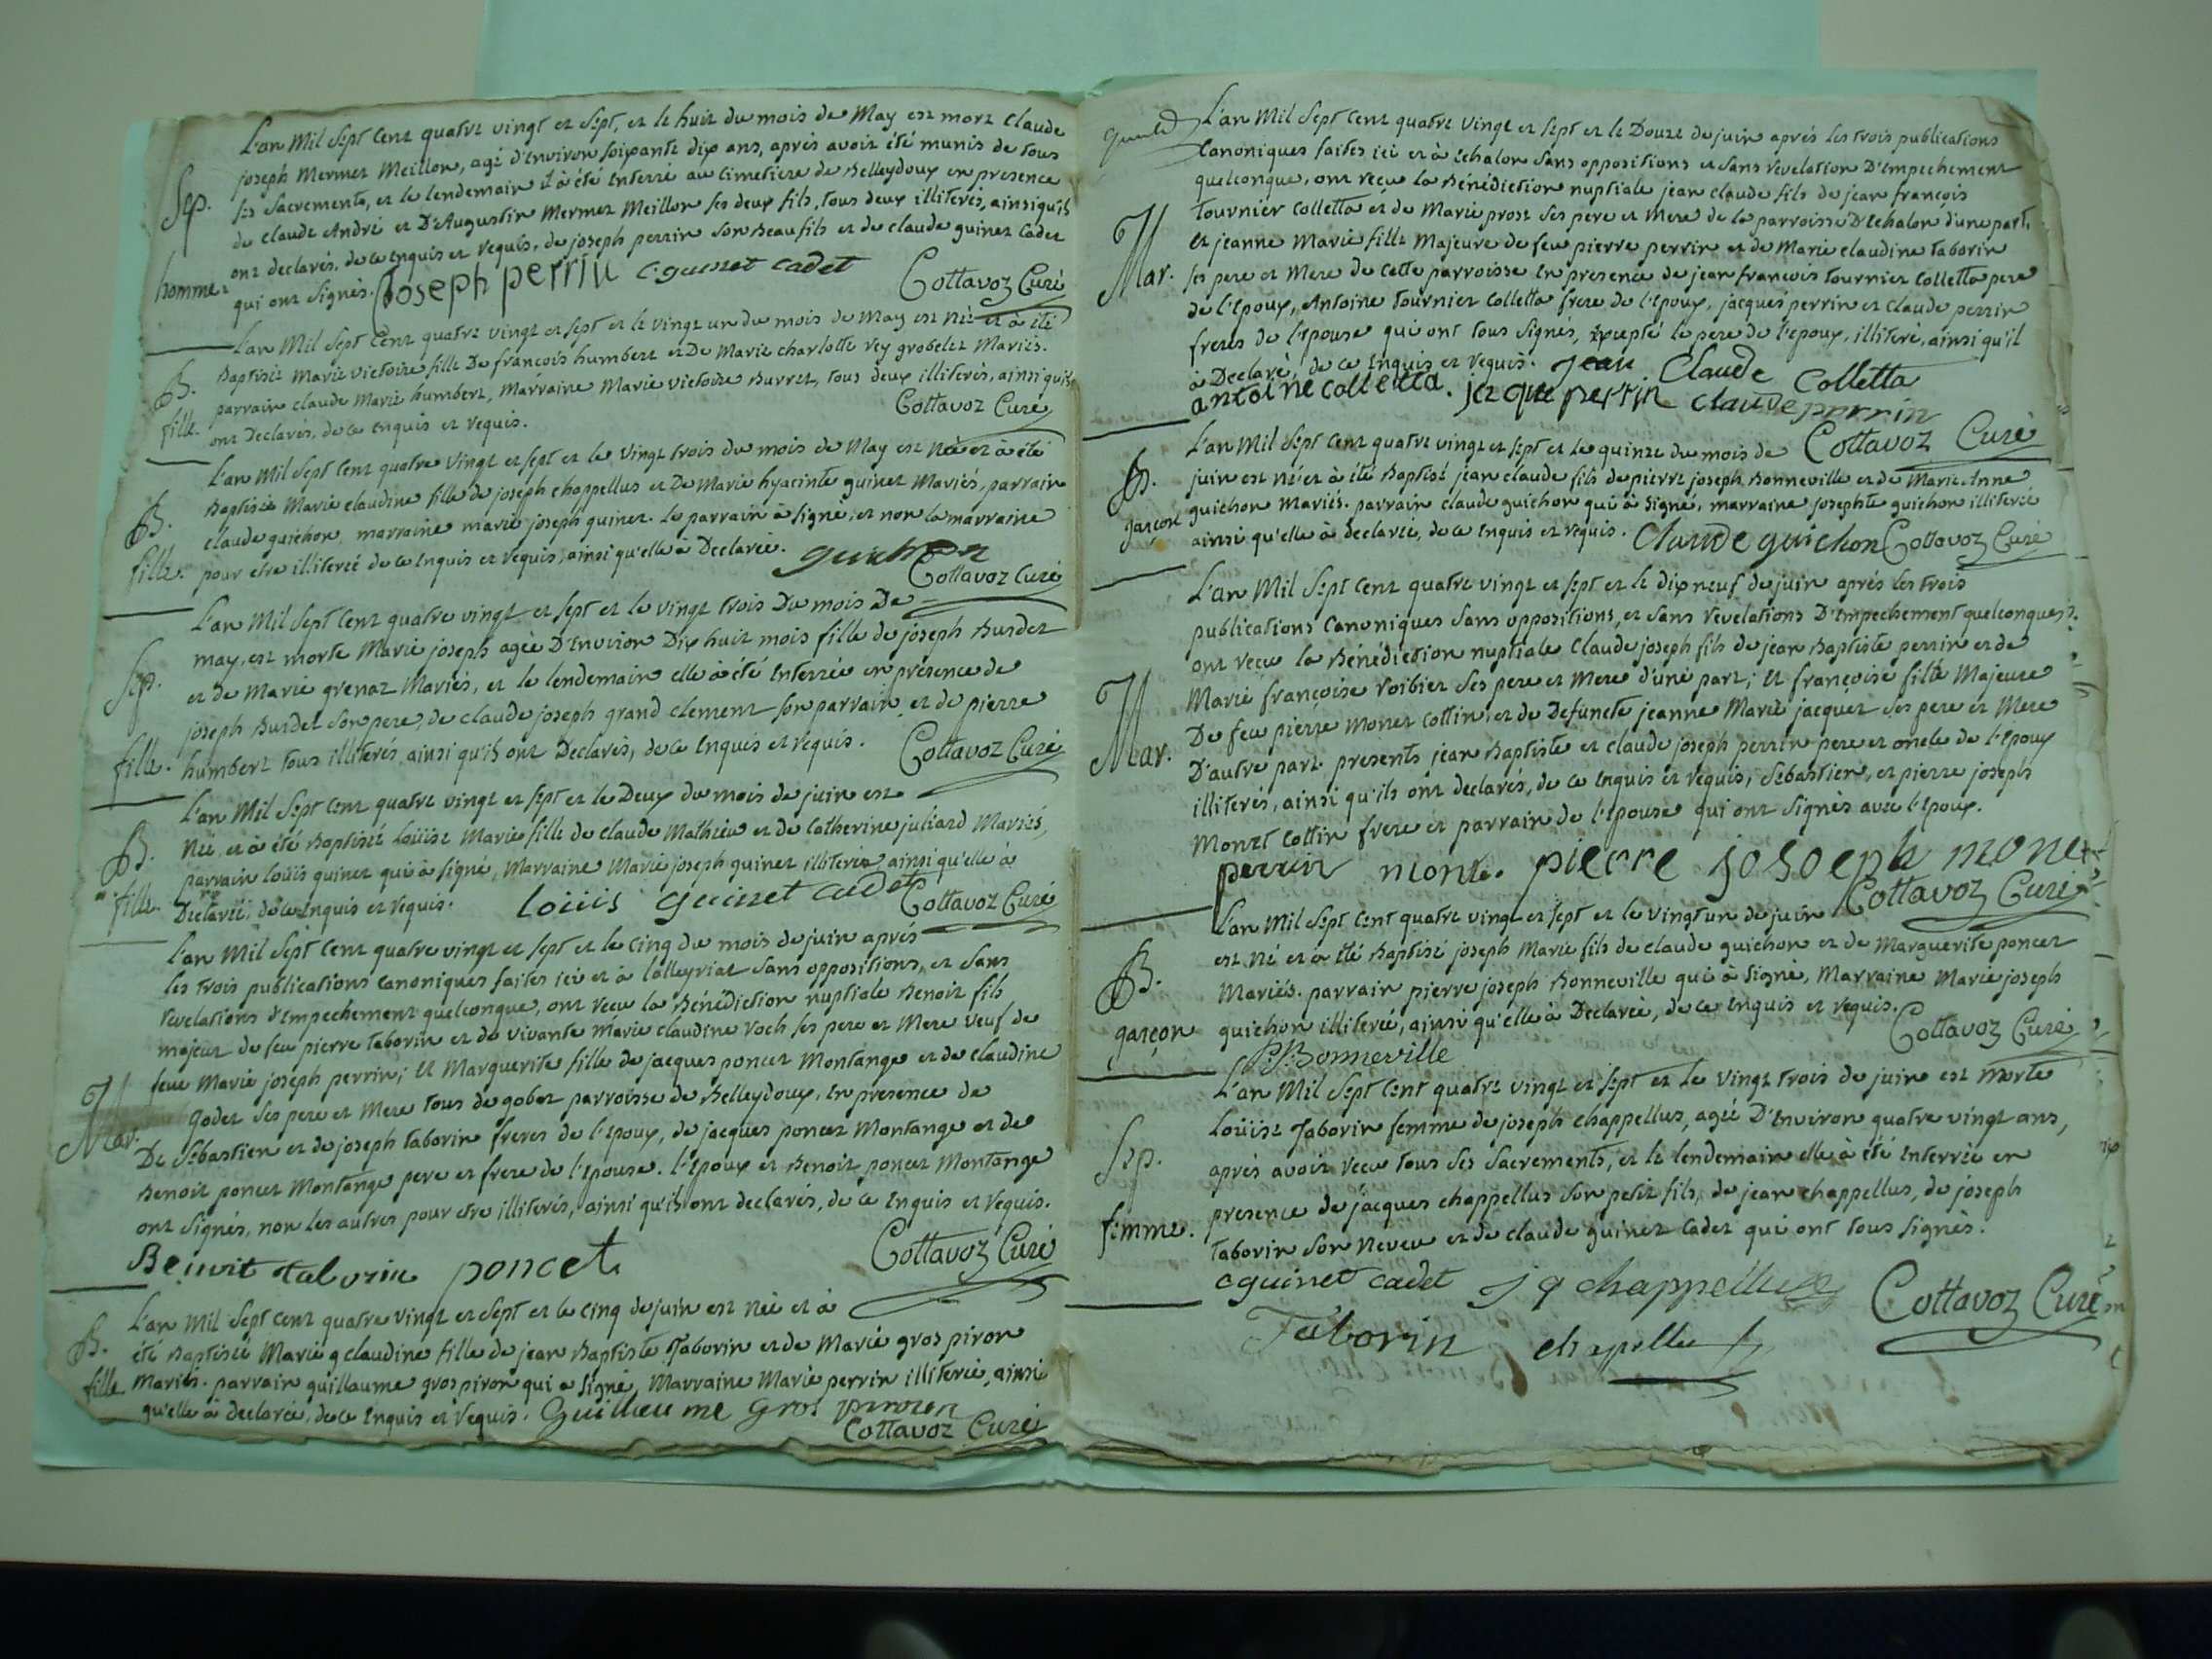 L'an Mil Sept Cent quatre vingt et Sept, et le huit du mois de May est mort Claude
joseph Mermet Meillon, agé d'Environ soixante dix ans, après avoir été munis de tous
Sep. ses Sacrements, et le lendemain il à été Enterré au Cimetiere de Belleydoux en presence
de claude André et D'Augustin Mermet Meillon ses deux fils, tous deux illiterés, ainsi qu'ils
homme. ont declarés, de ce Enquis et requis, de joseph perrin son Beaufils et de claude guinet Cadet
qui ont Signés. Joseph perrin C guinet cadet Cottavoz Curé
L'an Mil Sept Cent quatre vingt et sept et le vingt un du mois de May est Née et à été
B. Baptisée Marie victoire fille De françois humbert et De Marie charlotte rey grobelet Mariés.
parrain claude Marie humbert, Marraine Marie victoire Burret, tous deux illiterés, ainsi qu'ils
fille. ont Declarés, de ce Enquis et requis. Cottavoz Curé
L'an Mil Sept Cent quatre vingt et sept et le vingt trois du mois de May est Née et à été
B. Baptisée Marie claudine fille de joseph chappellus et De Marie hyacinte guinet Mariés, parrain
claude guichon, marraine marie joseph guinet. le parrain à signé, et non la marraine
fille. pour etre illiterée de ce Enquis et requis, ainsi qu'elle à Declarée. guichon
Cottavoz Curé
L'an Mil Sept Cent quatre vingt et sept et le vingt trois Du mois De
may, est morte Marie joseph agée D'Environ Dix huit mois fille de joseph Burdet
Sep. et de Marie grenaz Mariés, et le lendemain elle à été Enterrée en présence de
joseph Burdet son pere, de claude joseph grand clement son parrain et de pierre
fille. humbert tous illiterés, ainsi qu'ils ont Declarés, de ce Enquis et requis. Cottavoz Curé
L'an Mil Sept Cent quatre vingt et sept et le Deux du mois de juin est
B. Née et à été Baptisée Loüise Marie fille de claude Mathieu et de Catherine juliard Mariés,
parrain Loüis guinet qui à signé, Marraine Marie joseph guinet illiterée ainsi qu'elle à
fille. Declarée, de ce Enquis et requis. Loüis guinet cadet Cottavoz Curé
L'an Mil Sept Cent quatre vingt et sept et le Cinq du mois de juin après
les trois publications canoniques faites ici et à Lalleyriat sans oppositions, et sans
revelations d'Empechement quelconque, ont recu la Bénédiction nuptiale Benoit fils
majeur de feu pierre taborin et de vivante Marie claudine roch ses pere et Mere veuf de
feue Marie joseph perrin; Et Marguerite fille de jacques poncet Montange et de claudine
Mar. godet ses pere et Mere tous de gobet parroisse de Belleydoux, En presence de
De Sébastien et de joseph taborin freres de l'Epoux, de jacques poncet Montange et de
Benoit poncet Montange pere et frere de l'Epouse. l'Epoux et Benoit poncet Montange
ont Signés, non les autres pour etre illiterés, ainsi qu'ils ont declarés, de ce Enquis et requis.
Benoit taborin poncet Cottavoz Curé
L'an Mil Sept Cent quatre vingt et sept et le Cinq de juin est née et à
B. été Baptisée Marie claudine fille de jean Baptiste Taborin et de Marie gros piron
fille Mariés. parrain guillaume gros piron qui a signé, Marraine Marie perrin illiterée, ainsi
qu'elle à declarée, de ce Enquis et requis. Guilleume Gros piroson
Cottavoz Curé
L'an Mil Sept Cent quatre vingt et sept et le Douze de juin après les trois publications
Canoniques faites ici et à Echalon sans oppositions et sans revelation D'Empechement
quelconque, ont reçu la Bénédiction nuptiale jean claude fils de jean françois
tournier Colletta et de Marie prost ses pere et Mere de la parroisse D'Echalon d'une part,
Et jeanne Marie fille Majeure de feu pierre perrin et de Marie claudine taborin
Mar. ses pere et Mere de cette parroisse En presence de jean francois tournier Colletta pere
de l'Epoux, Antoine tournier Colletta frere de l'Epoux, jacques perrin et claude perrin
freres de l'Epouse qui ont tous signés, Excepté le pere de l'epoux, illiteré, ainsi qu'il
à Declaré, de ce Enquis et requis. jean Claude Colletta
antoine colletta. jacque perrin claude perrin
L'an Mil Sept Cent quatre vingt et sept et le quinze du mois de Cottavoz Curé
B. juin est né et à été Baptisé jean claude fils de pierre joseph Bonneville et de Marie Anne
garçon guichon Mariés. parrain claude guichon qui à signé, marraine josephte guichon illiterée
ainsi qu'elle à Declarée, de ce Enquis et requis. Claude guichon Cottavoz Curé
L'an Mil Sept Cent quatre vingt et sept et le dix neuf de juin après les trois
publications Canoniques sans oppositions, et sans revelations D'Empechement quelconques.
ont reçu la Bénédiction nuptiale Claude joseph fils de jean Baptiste perrin et de
Marie françoise roibier ses pere et Mere d'une part; Et françoise fille Majeure
De feu pierre Monet Cottin et de Defuncte jeanne Marie jacquet ses pere et Mere
Mar. D'autre part. presents jean Baptiste et claude joseph perrin pere et oncle de l'Epoux
illiterés, ainsi qu'ils ont declarés, de ce Enquis et requis, Sebastien, et pierre joseph
Monet Cottin frere et parrain de l'Epouse qui ont signés avec l'Epoux.
perrin mone. pierre josoeph monet
Cottavoz Curé
L'an Mil Sept Cent quatre vingt et sept et le vingt un de juin
B. est Né et à été Baptisé joseph Marie fils de claude guichon et de Marguerite poncet
Mariés. parrain pierre joseph Bonneville qui à signé, Marraine Marie joseph
garçon guichon illiterée, ainsi qu'elle à Declarée, de ce Enquis et requis.
P.J. Bonneville Cottavoz Curé
L'an Mil Sept Cent quatre vingt et sept et le vingt trois de juin est morte
Loüise Taborin femme de joseph chappellus, agée D'Environ quatre vingt ans,
Sep. après avoir recu tous ses Sacrements, et le lendemain elle à été Enterrée en
presence de jacques chappellus son petit fils, de jean chappellus, de joseph
femme. taborin son Neveu et de claude guinet Cadet qui ont tous signés.
c guinet cadet j q chappellus Cottavoz Curé
Taborin chapellu